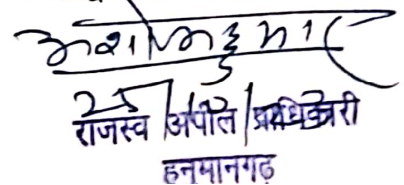 अशोक कुमार
राजस्व अपील प्राधिकारी
हनुमानगढ़